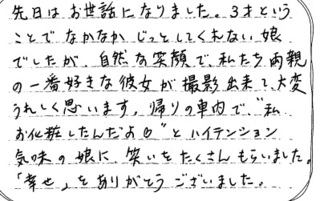 先日はお世話になりました。3才という
ことでなかなかじっとしてくれない娘
でしたが、自然な笑顔で、私たち両親
の一番好きな彼女が撮影出来て、大変
うれしく思います。帰りの車内で、"私
お化粧したんだよ"とハイテンション
気味の娘に、笑いをたくさんもらいました。
「幸せ」をありがとうございました。